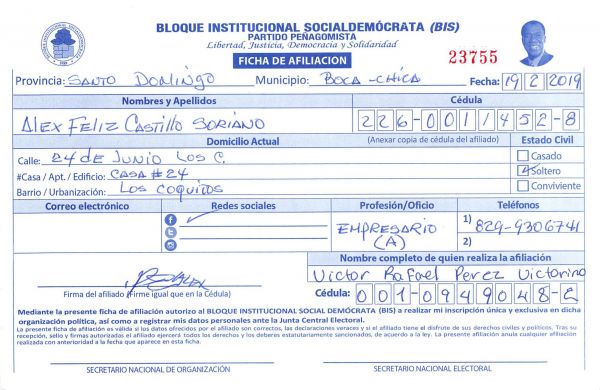 BLOQUE INSTITUCIONAL SOCIALDEMÓCRATA (BIS)
PARTIDO PEÑAGOMISTA
Libertad, Justicia, Democracia y Solidaridad
FICHA DE AFILIACION
23755
Provincia: SANTO DOMINGO Municipio: BOCA-CHICA Fecha: 19/2/2019
Nombres y Apellidos Cédula
ALEX FELIZ CASTILLO SORIANO 226-0011452-8
Domicilio Actual (Anexar copia de cédula del afiliado) Estado Civil
Calle: 24 DE JUNIO LOS C. Casado
#Casa / Apt. / Edificio: CASA #24 Soltero
Barrio / Urbanización: LOS COQUITOS Conviviente
Correo electrónico Redes sociales Profesión/Oficio Teléfonos
EMPRESARIO 1) 829-9306741
(A) 2)
Nombre completo de quien realiza la afiliación
Victor Rafael Perez Victorino
Firma del afiliado (Firme igual que en la Cédula) Cédula: 001-0949048-2
Mediante la presente ficha de afiliación autorizo al BLOQUE INSTITUCIONAL SOCIAL DEMÓCRATA (BIS) a realizar mi inscripción única y exclusiva en dicha
organización política, así como a registrar mis datos personales ante la Junta Central Electoral.
La presente ficha de afiliación es válida si los datos ofrecidos por el afiliado son correctos, las declaraciones veraces y si el afiliado tiene el disfrute de sus derechos civiles y políticos. Tras su
recepción, sello y firmas autorizadas el afiliado ejercerá todos los derechos y los deberes estatutariamente sancionados, de acuerdo a la ley. La presente afiliación anula cualquier afiliación
realizada con anterioridad a la fecha que aparece en esta ficha.
SECRETARIO NACIONAL DE ORGANIZACIÓN SECRETARIO NACIONAL ELECTORAL